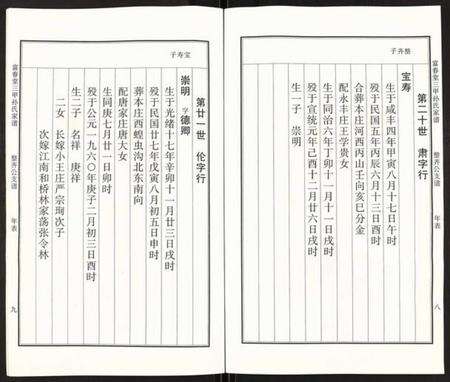 整齐子
第二十世 肃字行
宝寿
生于咸丰四年甲寅八月十七日午时
殁于民国五年丙辰六月十三日戌时
合葬本庄河西丙山壬向亥巳分金
配永丰庄王学贵女
生于同治六年丁卯十一月十一日戌时
殁于宣统元年己酉十二月廿六日戌时
生一子 崇明
富春堂三甲孙氏家谱
整齐公支谱
年表
八
宝寿子
第廿一世 伦字行
崇明 字德卿
生于光绪十七年辛卯十一月廿三日戌时
殁于民国廿七年戊寅八月初五日申时
葬本庄西蝗虫沟北东南向
配唐家庄唐大女
生同庚七月廿一日卯时
殁于公元一九六〇年庚子二月初三日酉时
生二子 名祥 庚祥
二女 长嫁小王庄严宗珣次子
次嫁江南和桥林家荡张令林
富春堂三甲孙氏家谱
整齐公支谱
年表
九